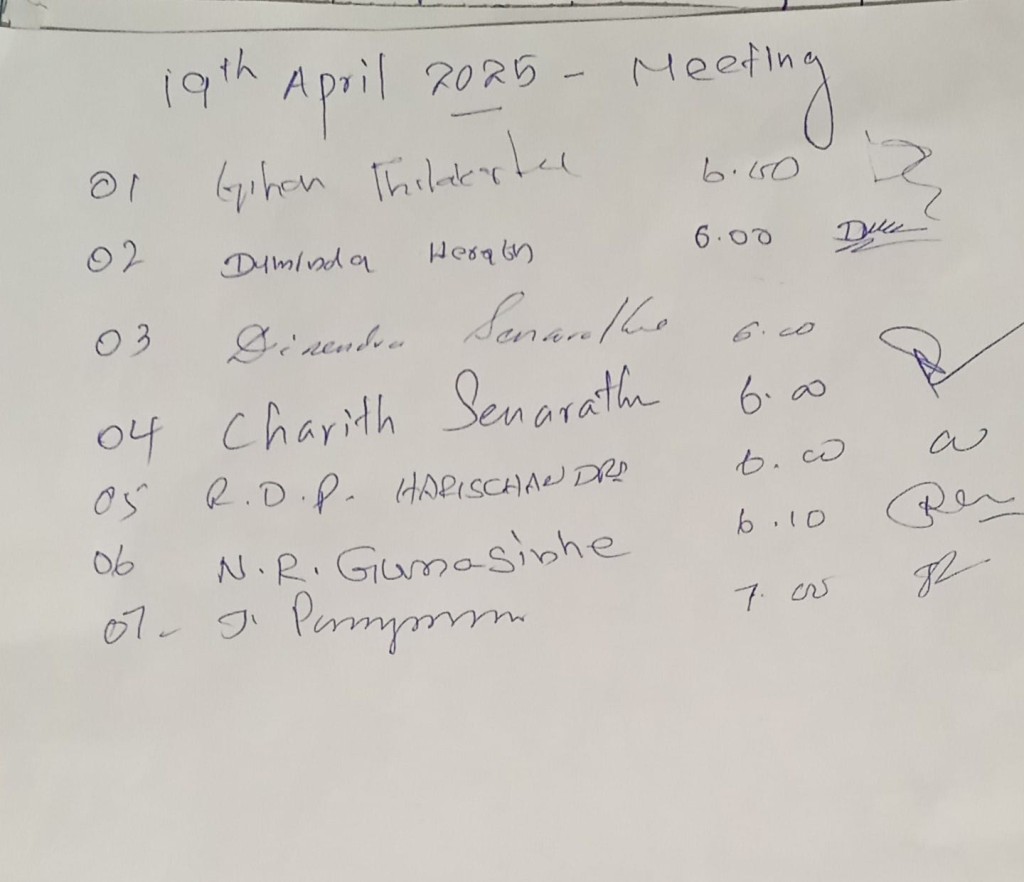 19th April 2025 - Meeting
01 Gihan Thilakarathe 6.00
02 Duminda Herath 6.00
03 Dinendra Senarathe 6.00
04 Charith Senarath 6.00
05 R.D.P. HARISCHANDRA 6.00
06 N.R. Gunasinhe 6.10
07- J. 7.00